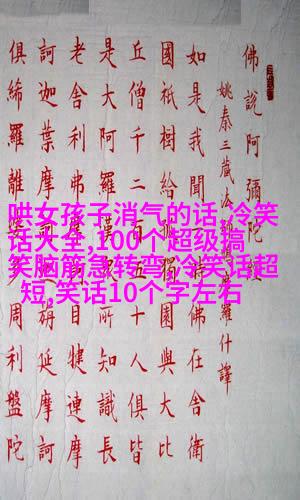 哄女孩子消气的话,冷笑
话大全,100个超级搞
笑脑筋急转弯,冷笑话超
短,笑话10个字左右
佛說阿彌陀經
姚秦三藏法師鳩摩羅什譯
如是我聞佛在舍衛
國祇樹給孤獨園與大比
丘僧千二五十人俱皆
是大阿羅所知識長
老舍利弗目犍連摩
訶迦葉摩旃延摩訶
俱絺羅離周利盤陀